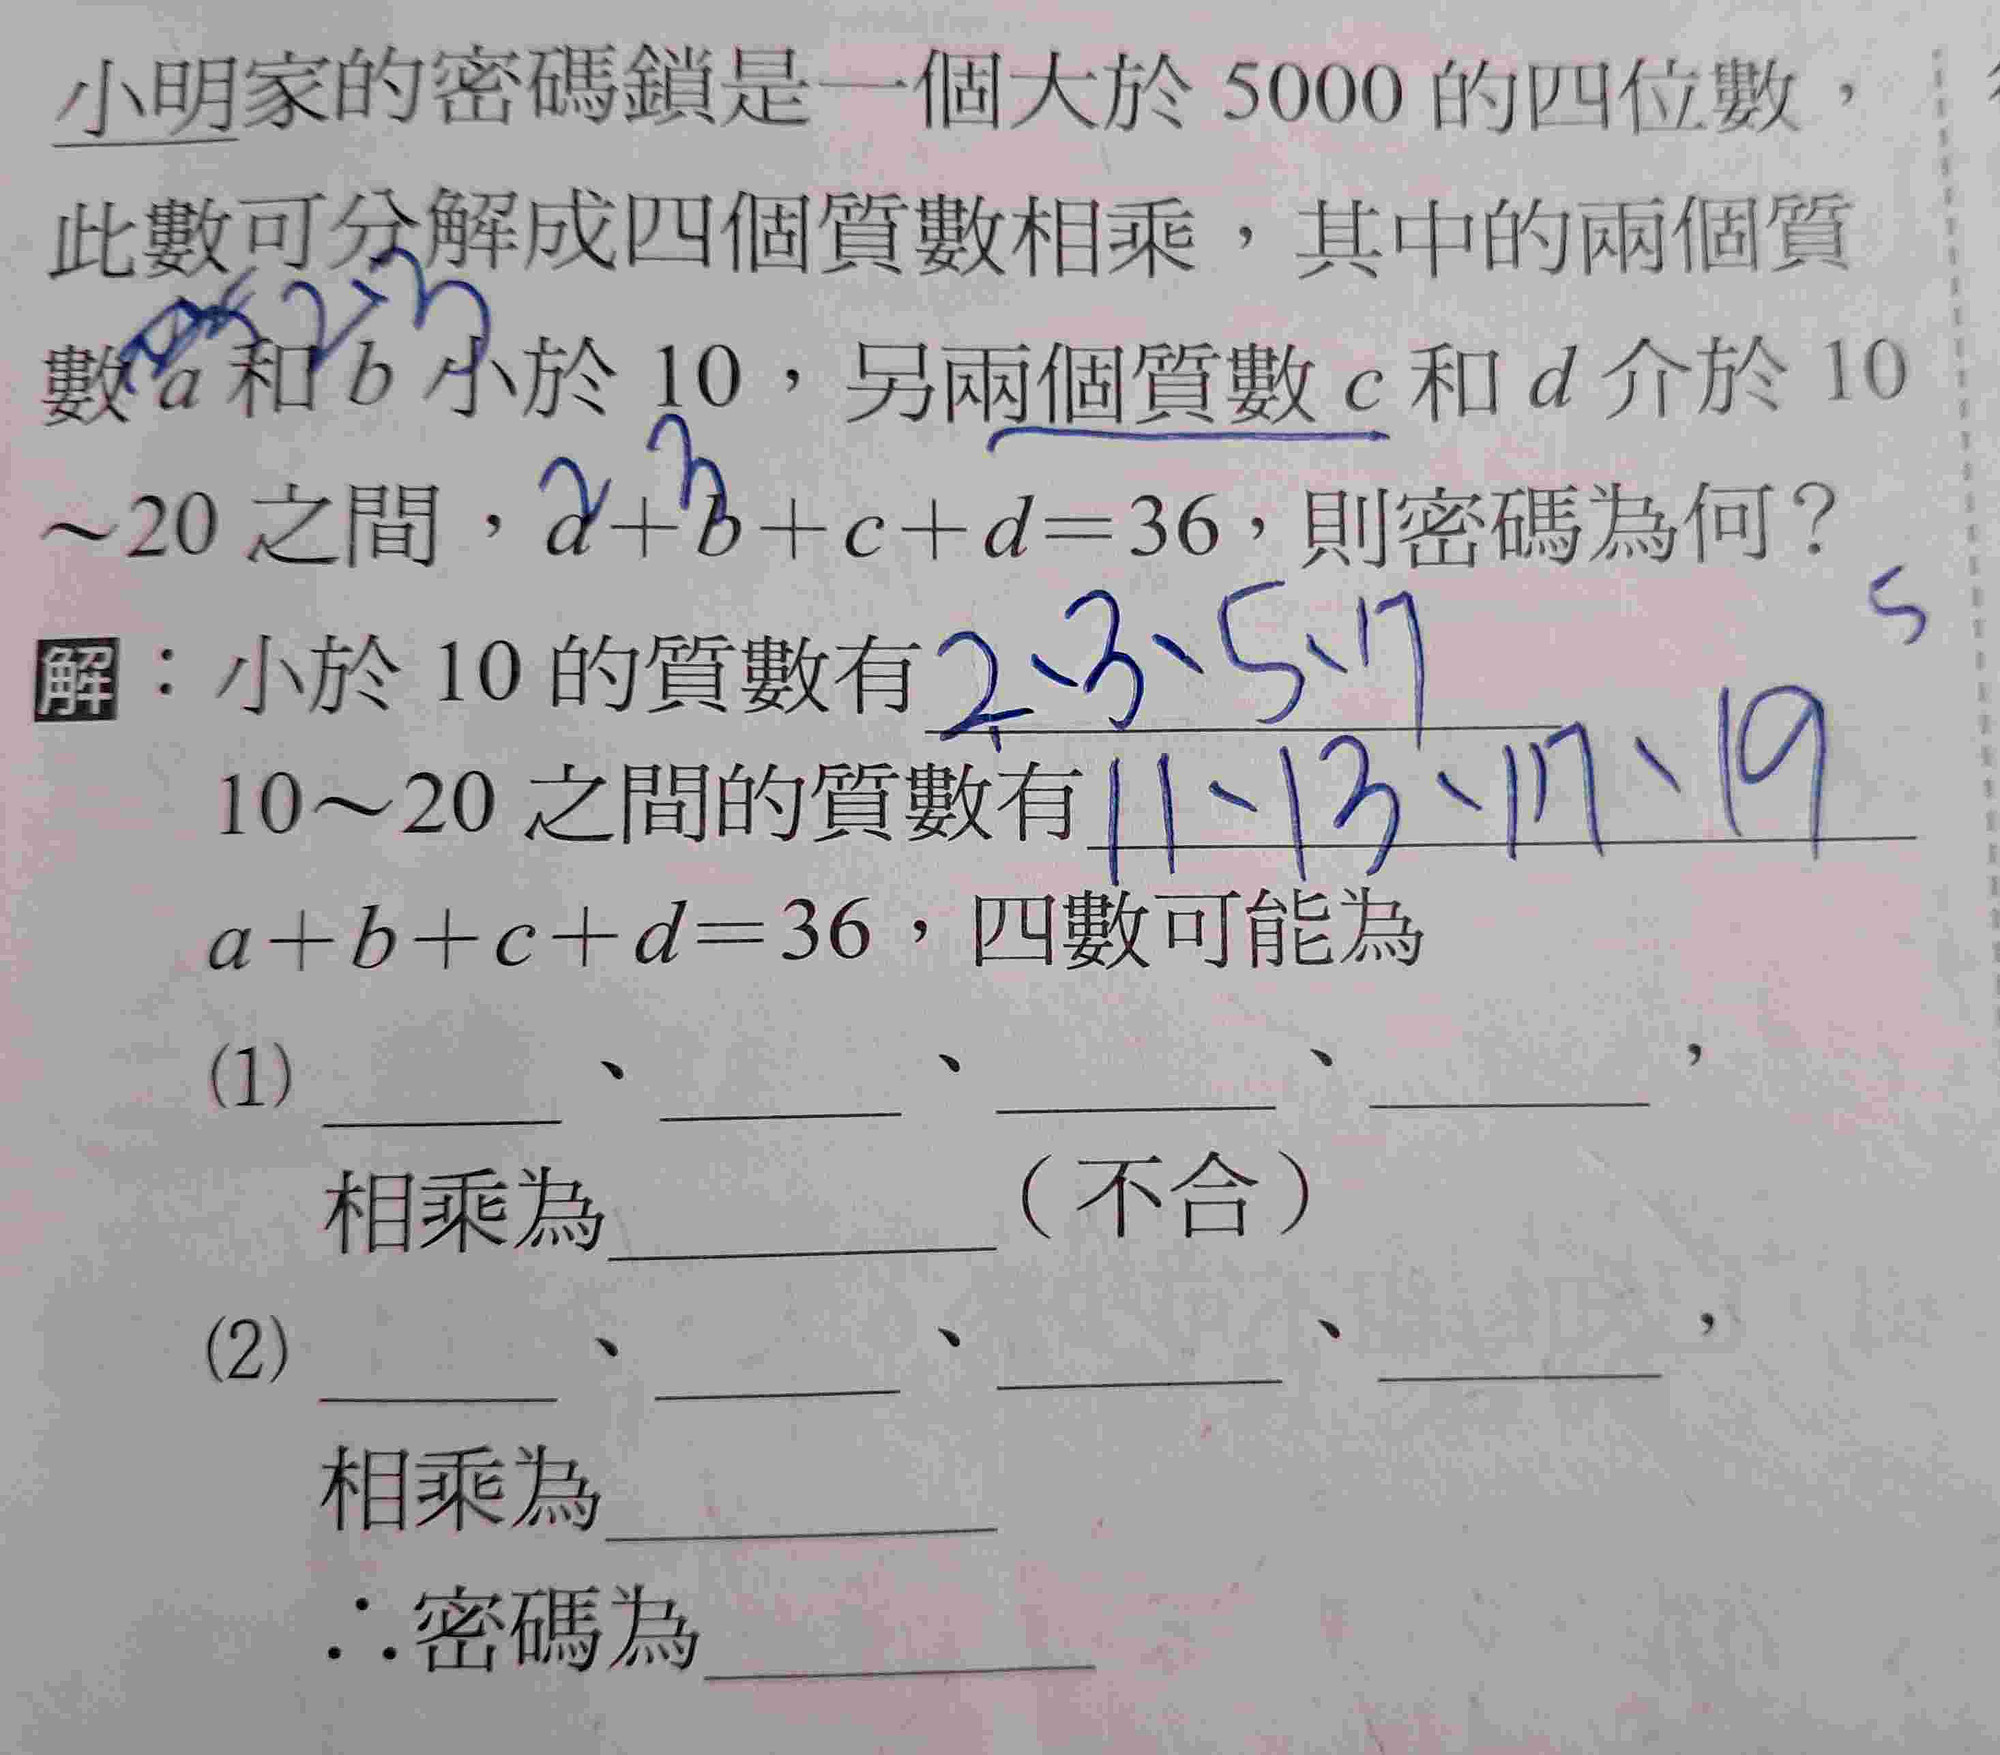 小明家的密碼鎖是一個大於 5000 的四位數，
此數可分解成四個質數相乘，其中的兩個質
2、3
數 a 和 b 小於 10，另兩個質數 c 和 d 介於 10
2 3
～20 之間，a＋b＋c＋d＝36，則密碼為何？
5
解：小於 10 的質數有2、3、5、7
10～20 之間的質數有11、13、17、19
a＋b＋c＋d＝36，四數可能為
(1) ＿＿、＿＿、＿＿、＿＿，
相乘為＿＿＿（不合）
(2) ＿＿、＿＿、＿＿、＿＿，
相乘為＿＿＿
∴密碼為＿＿＿